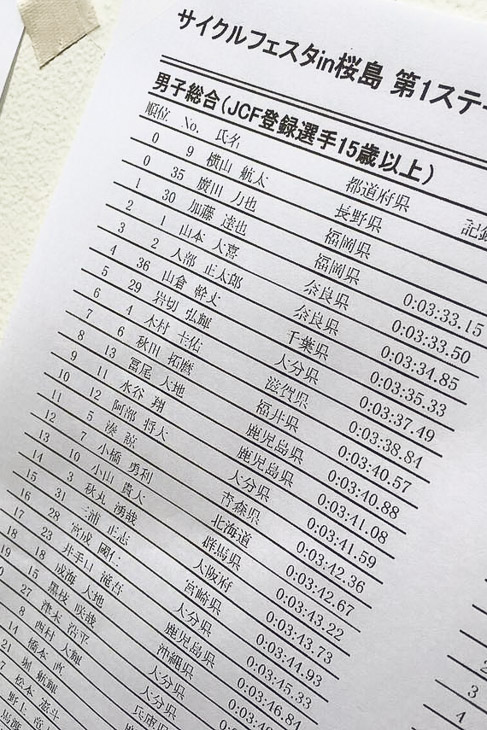 サイクルフェスタin桜島 第1ステー
男子総合(JCF登録選手15歳以上)
順位 No. 氏名 都道府県 記録
0 9 横山 航太 長野県
0 35 廣川 力也 福岡県
1 30 加藤 達也 福岡県 0:03:33.15
2 1 山本 大喜 奈良県 0:03:33.50
3 2 入部 正太郎 奈良県 0:03:34.85
4 36 山倉 幹丈 千葉県 0:03:35.33
5 29 岩切 弘輝 大分県 0:03:37.49
6 4 木村 圭佑 滋賀県 0:03:38.84
7 6 秋田 拓磨 福井県 0:03:40.57
8 13 冨尾 大地 鹿児島県 0:03:40.88
9 11 水谷 翔 鹿児島県 0:03:41.08
10 12 阿部 将大 大分県 0:03:41.59
11 5 湊 諒 青森県 0:03:42.36
12 7 小橋 勇利 北海道 0:03:42.67
13 10 小山 貴大 群馬県 0:03:43.22
14 3 秋丸 湧哉 大阪府 0:03:43.73
15 31 三浦 正志 宮崎県 0:03:44.93
16 28 宮成 國仁 大分県 0:03:45.33
17 23 井手口 滝吾 鹿児島県 0:03:46.84
18 18 成海 大地 沖縄県
19 15 黒枝 咲哉 大分県
27 津末 浩平 大分県
8 西村 大輝 兵庫県
14 橋本 直
21 堀 航輝
松本 憲斗